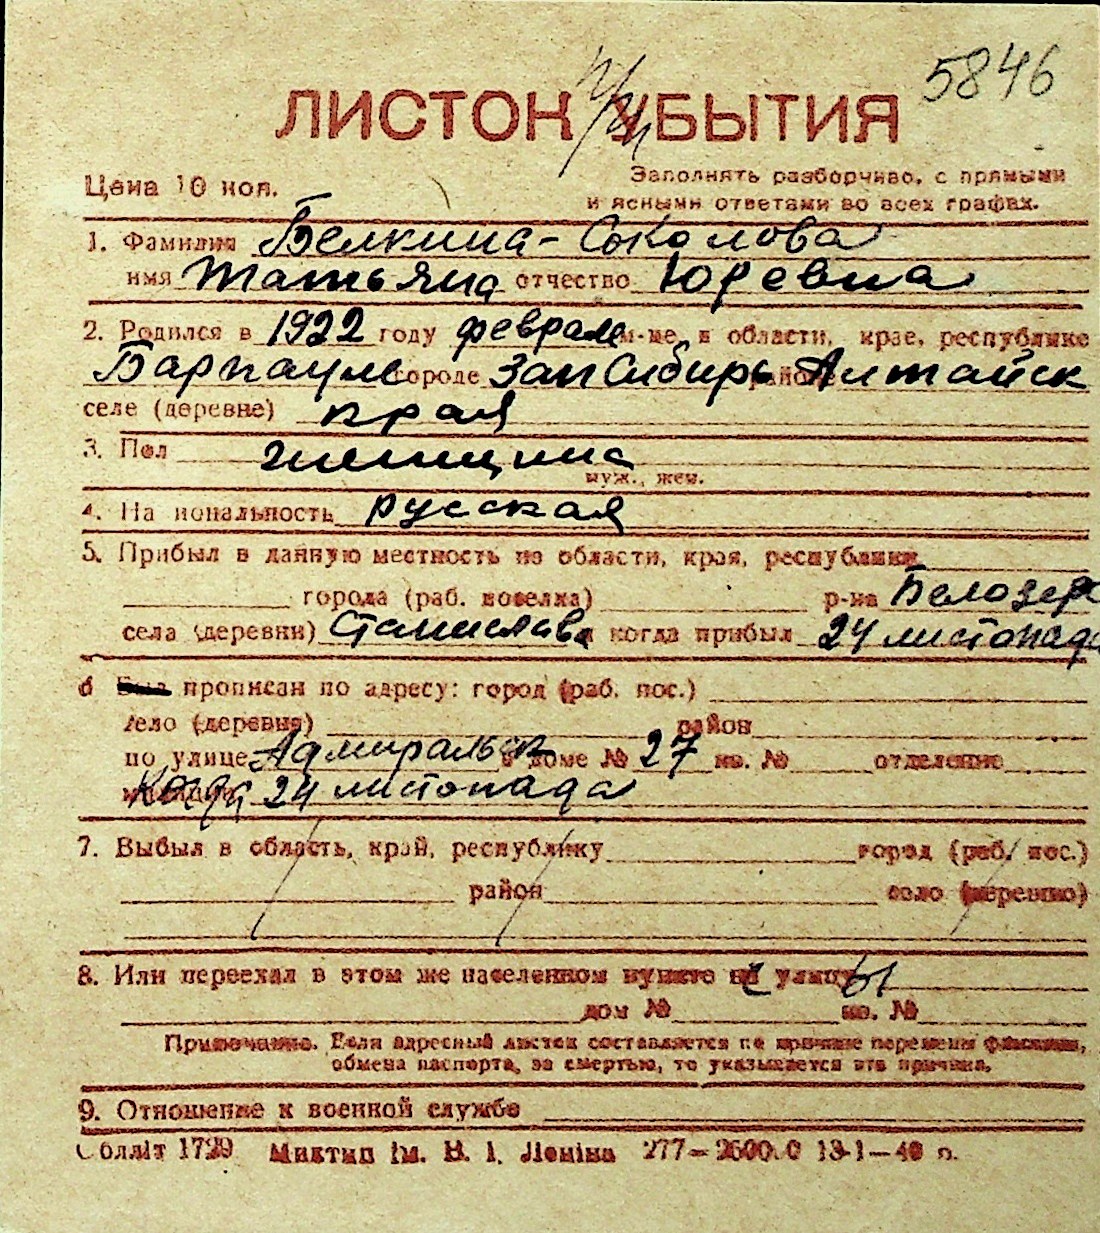 5846
ЛИСТОК УБЫТИЯ
при
Цена 10 коп.
Заполнять разборчиво, с прямыми
и ясными ответами во всех графах.
1. Фамилия Белкина-Соколова
имя Татьяна отчество Юревна
2. Родился в 1922 году феврале м-це, в области, крае, республике
Барнауле городе ЗапСибирь районе Алтайск
селе (деревне) края
3. Пол женщина
муж., жен.
4. Национальность русская
5. Прибыл в данную местность из области, края, республики
города (раб. поселка) р-на Белозерс
села (деревни) Станислава и когда прибыл 24 листопада
6 Был прописан по адресу: город (раб. пос.)
село (деревня) район
по улице Адмиральск в доме № 27 кв. № отделение
Когда 24 листопада
7. Выбыл в область, край, республику город (раб. пос.)
район село (деревню)
8. Или переехал в этом же населенном пункте на улицу
дом № кв. №
Примечание. Если адресный листок составляется по причине перемены фамилии,
обмена паспорта, за смертью, то указывается эта причина.
9. Отношение к военной службе
Облліт 1729 Миктип ім. В. І. Леніна 277— 13-1—40 р.